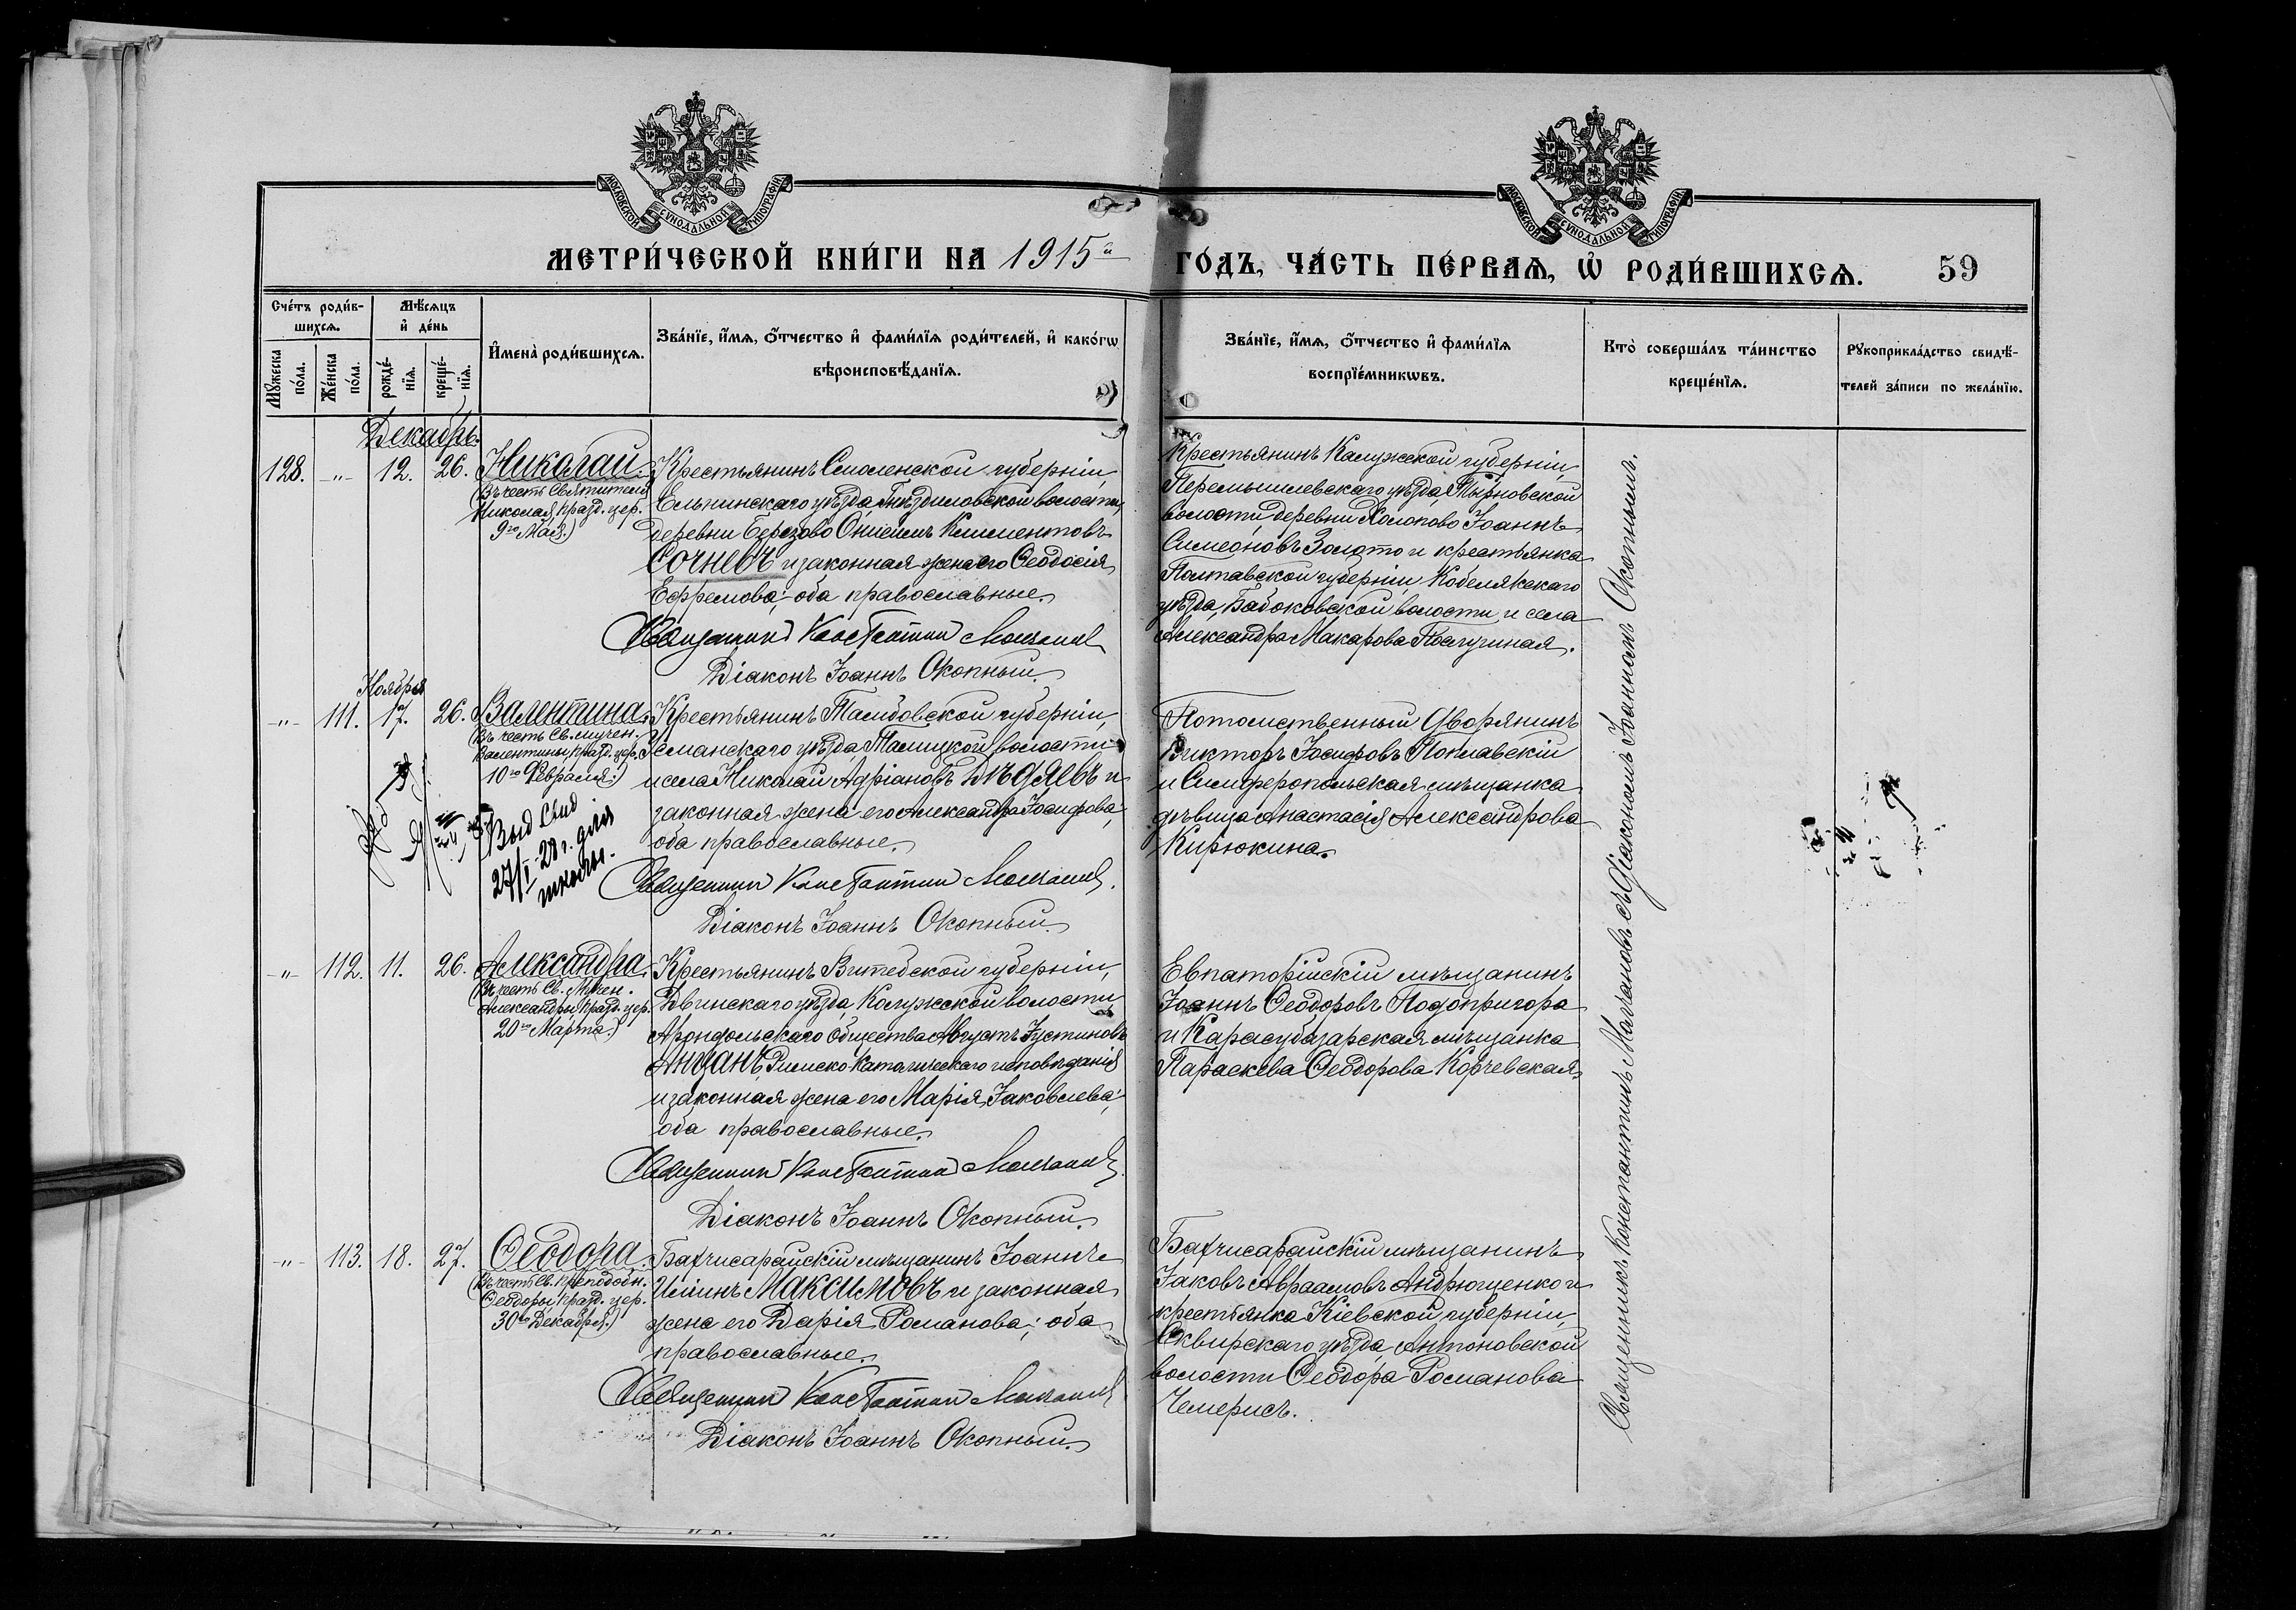 МОСКОВСКОЙ СѴНОДАЛЬНОЙ ТИПОГРАФІИ
МОСКОВСКОЙ СѴНОДАЛЬНОЙ ТИПОГРАФІИ
МЕТРИ́ЧЕСКОЙ КНИ́ГИ НА 1915й ГО́ДЪ, ЧА́СТЬ ПЕ́РВАѦ, Ѡ҆ РОДИ́ВШИХСѦ. 59
Сче́тъ роди́в-
шихсѧ.
Мѣ́сѧцъ
и҆ де́нь
Мꙋ́жеска
по́ла.
Же́нска
по́ла.
рожде́-
нїѧ.
креще́-
нїѧ.
И҆мена̀ роди́вшихсѧ.
Зва́нїе, и҆́мѧ, ѻ҆́тчество и҆ фами́лїѧ роди́телей, и҆ како́гѡ
вѣроисповѣ́данїѧ.
Зва́нїе, и҆́мѧ, ѻ҆́тчество и҆ фами́лїѧ
воспрїе́мникѡвъ.
Кто̀ соверша́лъ та́инство
креще́нїѧ.
Рꙋкоприкла́дство свидѣ́-
телей за́писи по жела́нїю.
Декабрь.
128. -„- 12. 26. Николай.
(Въ честь Святителя
Николая, празд. цер.
9го Мая.)
Крестьянинъ Смоленской губерніи,
Ельнинскаго уѣзда, волости,
деревни Березово Онисимъ Климентовъ
Сочневъ и законная жена его Ѳеодосія
Ефремова; оба православные.
Священникъ Константинъ
Діаконъ Іоаннъ Окопный.
Крестьянинъ Калужской губерніи,
Перемышлевскаго уѣзда,
волости деревни Холопово Іоаннъ
Симеоновъ Золото и крестьянка
Полтавской губерніи, Кобелякскаго
уѣзда, Бабоковской волости, и села
Александра Макарова
Ноября
-„- 111. 17. 26. Валентина.
(Въ честь Св. мучен.
Валентины, празд. цер.
10го Февраля.)
Выд Свид
27/I-28 г. для
школы.
Крестьянинъ Тамбовской губерніи,
Усманскаго уѣзда, Талицкой волости
и села Николай Адріановъ и
законная жена его Александра Іосифова;
оба православные.
Священникъ Константинъ
Діаконъ Іоаннъ Окопный.
Потомственный Дворянинъ
Викторъ Іосифовъ Поплавскій
и Симферопольская мѣщанка
дѣвица Анастасія Александрова
Кирюкина.
-„- 112. 11. 26. Александра.
(Въ честь Св. Мучен.
Александры, празд. цер.
20го Марта.)
Крестьянинъ Витебской губерніи,
Двинскаго уѣзда, Калужской волости
Арондольскаго Общества Августъ Іустиновъ
Анцанъ, Римско-Католическаго исповѣданія
и законная жена его Марія Іаковлева;
оба православные.
Священникъ Константинъ
Діаконъ Іоаннъ Окопный.
Евпаторійскій мѣщанинъ
Іоаннъ Ѳеодоровъ Подопригора
и Карасубазарская мѣщанка
Параскева Ѳеодорова Корчевская.
-„- 113. 18. 27. Ѳеодора.
(Въ честь Св. преподобн.
Ѳеодоры, празд. цер.
30го Декабря.)
Бахчисарайскій мѣщанинъ Іоаннъ
Ильинъ Максимовъ и законная
жена его Дарія Романова; оба
православные.
Священникъ Константинъ
Діаконъ Іоаннъ Окопный.
Бахчисарайскій мѣщанинъ
Іаковъ Авраамовъ Андрющенко и
крестьянка Кіевской губерніи,
Сквирскаго уѣзда, Антоновской
волости Ѳеодора Романова
Чемерисъ.
Священникъ Константинъ съ Діакономъ Іоанномъ Окопнымъ.